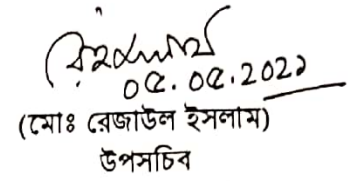 ০৫.০৫.২০২১
(মোঃ রেজাউল ইসলাম)
উপসচিব